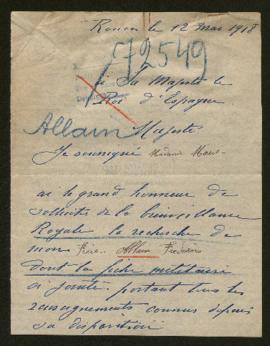 Rouen le 12 mai 1918
72549
à Sa Majesté le
Roi d'Espagne
Allain
Majesté
Je soussigné
ai le grand honneur de
solliciter de la bienveillance
Royale la recherche de
mon frère Allain
dont la fiche militaire
ci jointe portant tous les
renseignements connus depuis
sa disparition